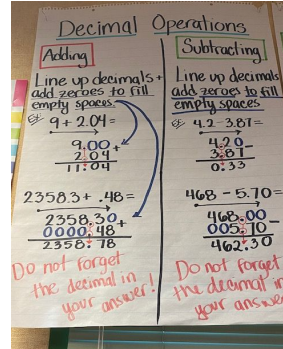 Decimal Operations
Adding
Line up decimals +
add zeroes to fill
empty spaces.
Ex: 9 + 2.04 =
9.00 +
2.04
11.04
2358.3 + .48 =
2358.30 +
0000.48
2358.78
Do not forget
the decimal in
your answer!
Subtracting
Line up decimals
add zeroes to fill
empty spaces
Ex: 4.2 - 3.87 =
4.20 -
3.87
0.33
468 - 5.70 =
468.00 -
005.70
462.30
Do not forget
the decimal in
your answer